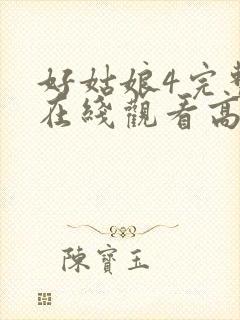 好姑娘4完整
在綫觀看高
陳寶玉